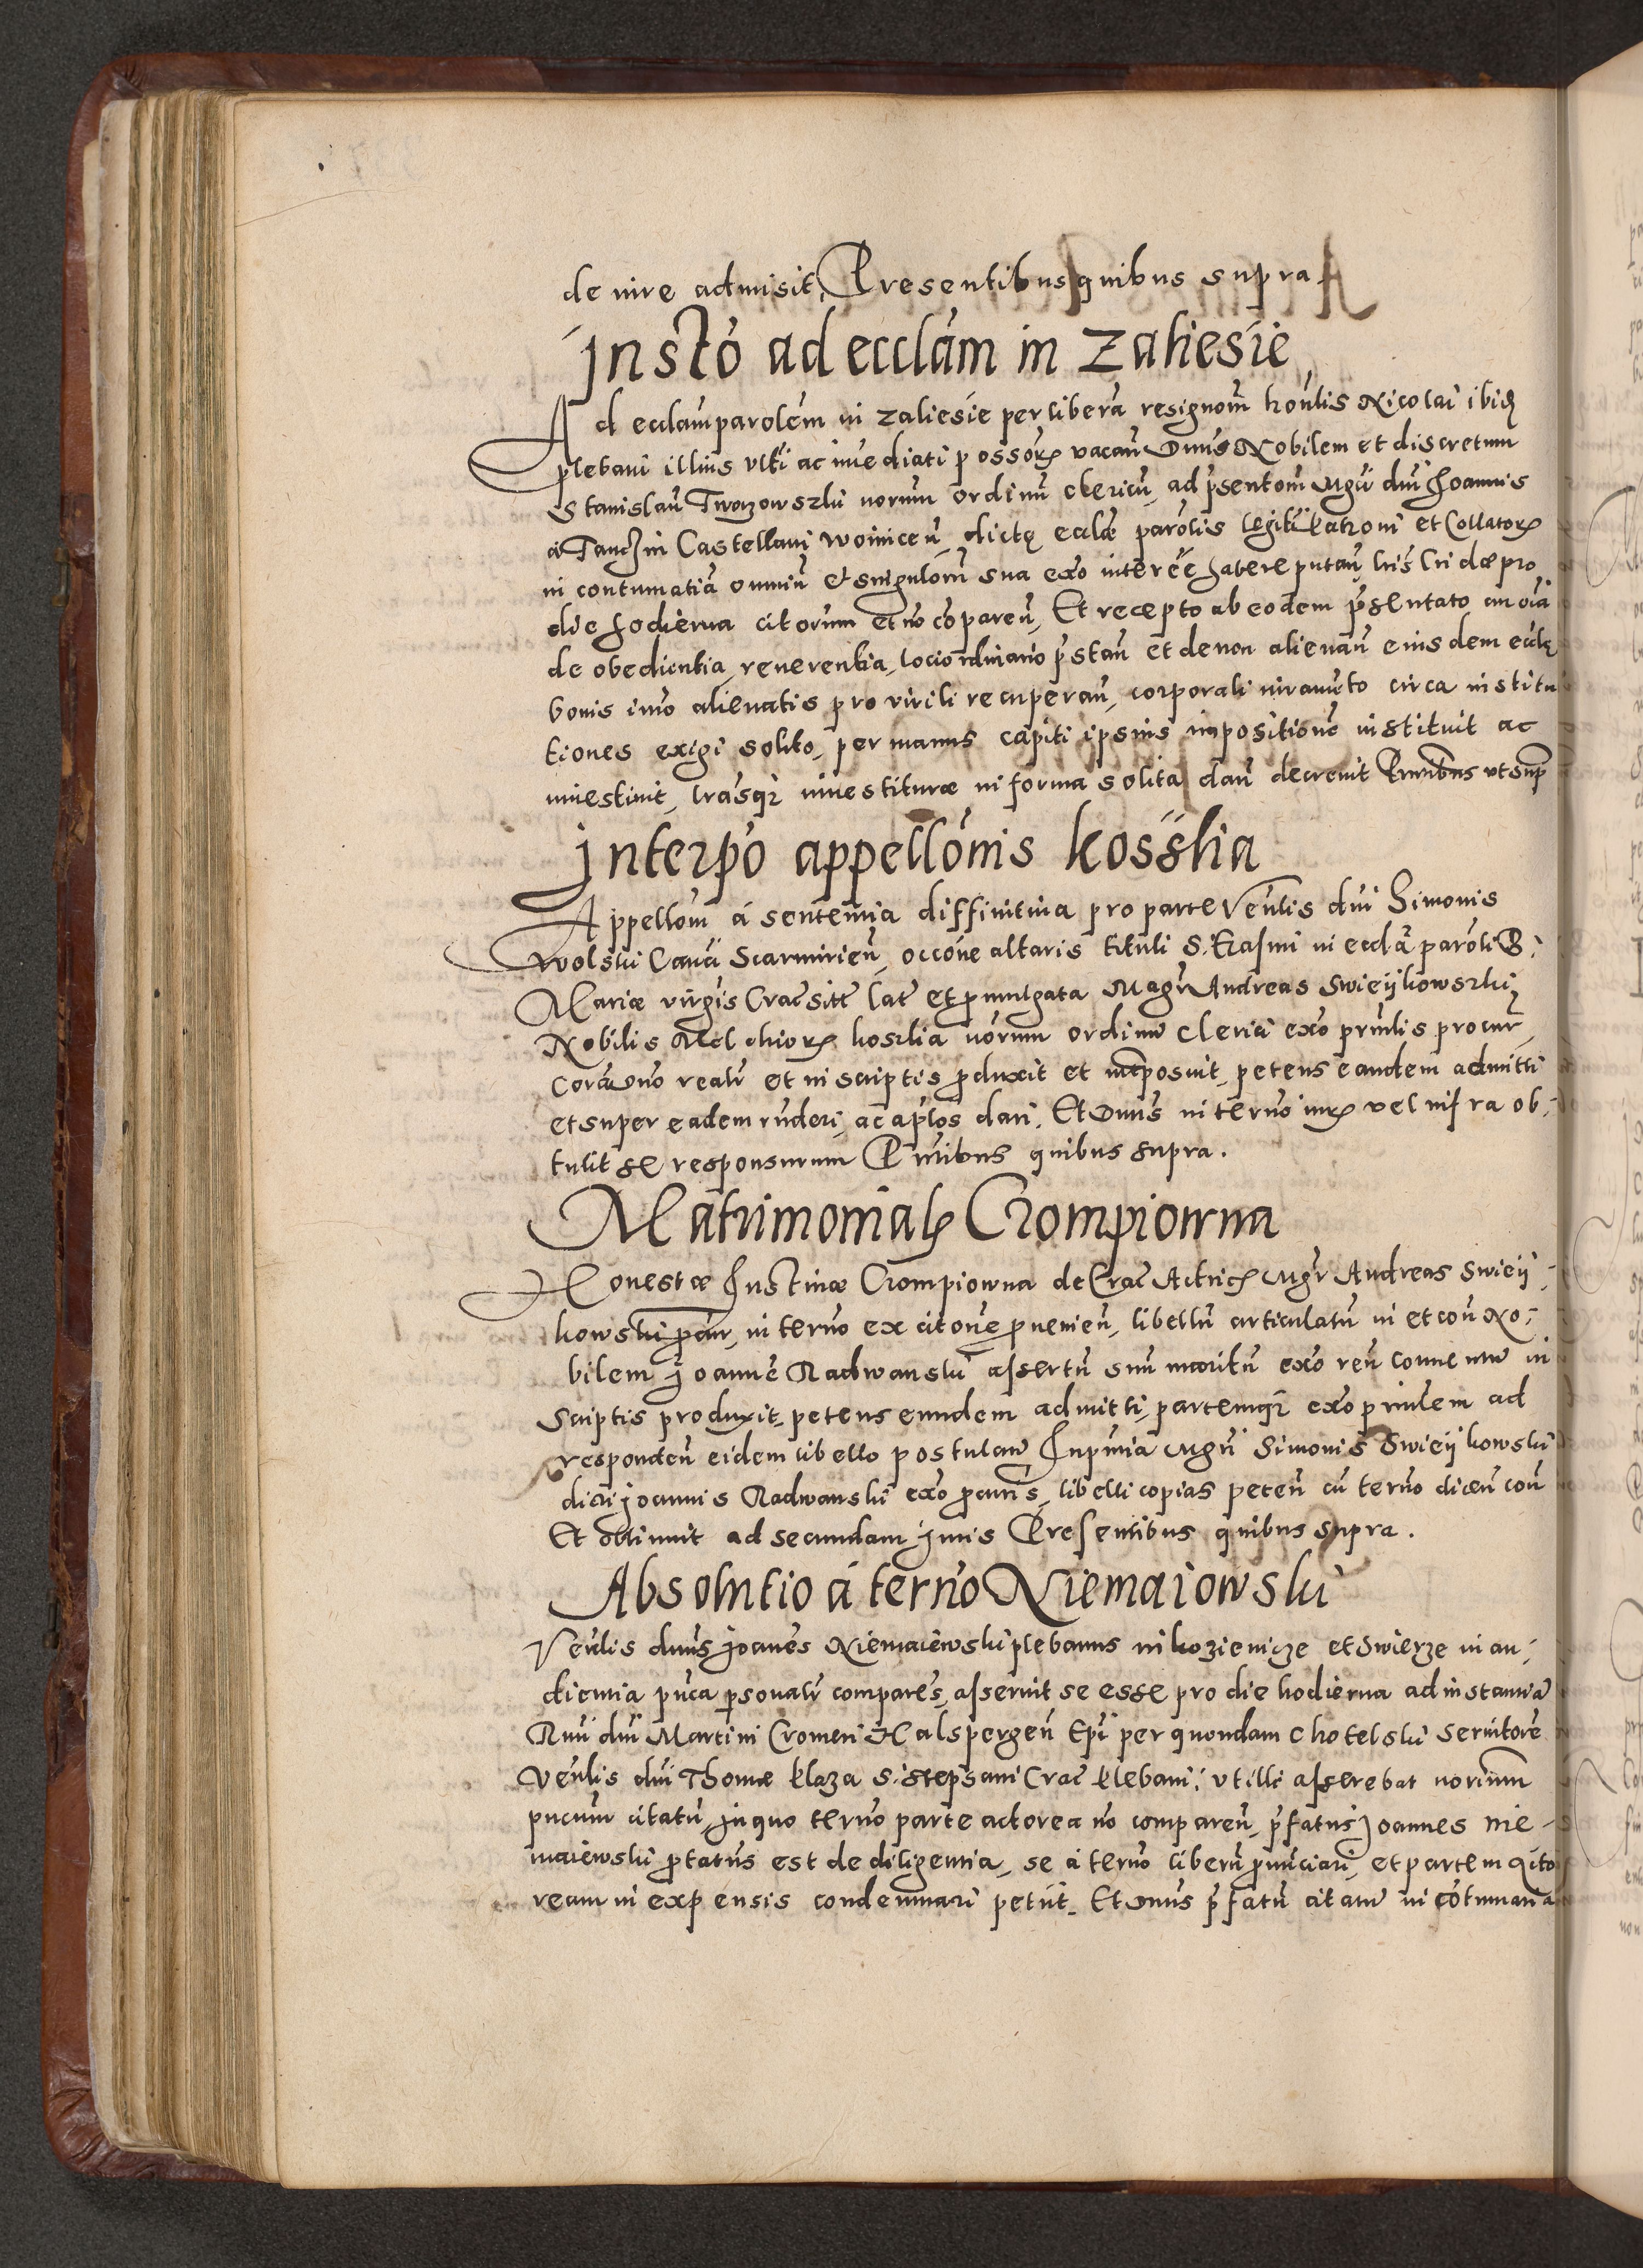 de iure admisit, Presentibus quibus supra
Insto ad ecclam in Zaliesie
Ad ecclam parolem in Zaliesie per libera resignom honlis Nicolai ibidem
plebani illius ulti ac immediati possoris vacan Dnus Nobilem et discretum
Stanislau Twarowszki norum ordinu clericu, ad psentom Mgci dni Joannis
a Tanczin Castellani Woinicen, dictę ecclæ parolis legitimi patroni et Collatoris
in contumatia omniu et singulorum sua exo interee habere putan, lris lri dæ pro
die hodierna citorum et no coparen, Et recepto ab eodem psentato iuroia
de obedientia, reverentia, loci ordinario pstan et de non alienan eiusdem ecclę
bonis imo alienatis pro virili recuperan, corporali iuramento circa institu
tiones exigi solito, per manus capiti ipsius impositione instituit ac
investivit, lrasque investituræ in forma solita dan decrevit Pntibus ut sup
Interpo appellonis Kosslia
Appellom a sententia diffinitiva pro parte Venlis dni Simonis
Wolski Canci Scarmirien, occone altaris tituli S. Erasmi in eccla paroli B:
Mariæ virgis Crac sitt lat et promulgata Magr Andreas Swieijkowszki
Nobilis Melchioris koszlia norum ordinu clerici exo prnlis procur
Cora Dno realr et in scriptis produxit et interposuit, petens eandem admitti
et super eadem runderi, ac aplos dari. Et Dnus in terno iuris vel infra ob:
tulit se responsurum Pntibus quibus supra.
Matrimonialis Crompiowna
Honestæ Justinæ Crompiowna de Crac Actricis Mgr Andreas Swieij:
kowski procur, in terno ex citone provenien, libellu articulatu in et con No:
bilem Joanne Radwanski assertu suu maritu exo reu conventu in
scriptis produxit, petens eundem admitti, partemque exo prnlem ad
responden eidem libello postulan, In pntia Mgri Simonis Swieijkowski
dicti Joannis Radwanski exo procuris, libelli copias peten cu terno dicen con
Et obtinuit ad secundam iuris Presentibus quibus supra.
Absolutio a terno Niemaiowski
Venlis dnus Joanes Niemaiewski plebanus in kozienicze et Swierze in au:
dientia puca personalr compares, asseruit se esse pro die hodierna ad instantia
Rmi dni Martini Cromeri Halspergen Epi per quondam Chotelski servitore
Venlis dni Thomæ klaza S. Stephani Crac plebani, ut ille asserebat norium
pucum citatu, in quo terno parte actorea no comparen, pfatus Joannes nie-
maiewski protatus est de diligentia, se a terno liberu pnunciari, et partem acto
ream in expensis condemnari petiit. Et Dnus pfatu citatu in cotumatia